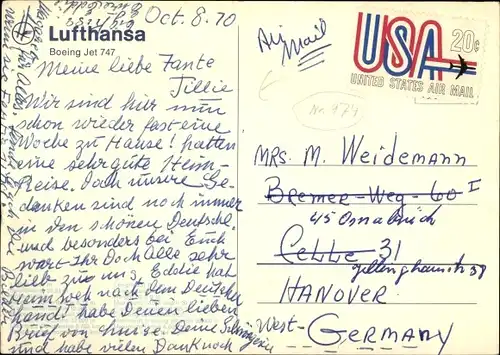 Oct. 8. 70
Lufthansa
Boeing Jet 747
Meine liebe Tante
Tillie
Wir sind hier nun
schon wieder fast eine
Woche zu Hause! hatten
eine sehr gute Heim-
Reise. Doch unsere Ge-
danken sind noch immer
in den schönen Deutschl.
und besonders bei Euch
wart Ihr Doch Alle sehr
lieb zu uns, Eddie hat
Heimweh nach dem Deutschen
Land! habe Deinen lieben
Brief von Deine
und habe vielen Dank noch
Air Mail
USA 20c
UNITED STATES AIR MAIL
MRS. M. Weidemann
Bremer-Weg-60 I
45 Osnabrück
Celle 31
38
HANOVER
West-Germany